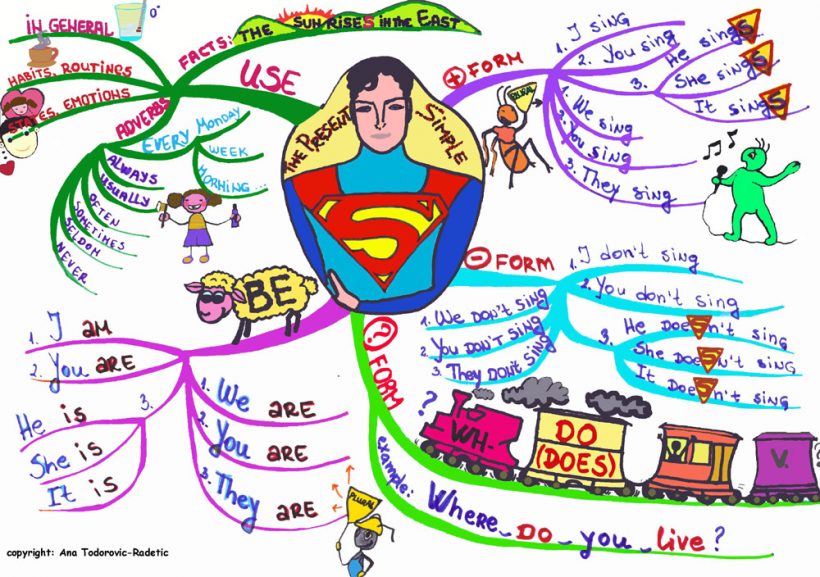 IN GENERAL
HABITS, ROUTINES
STATES, EMOTIONS
FACTS: THE SUN RISES in the EAST
USE
ADVERBS
EVERY MONDAY
WEEK
MORNING...
ALWAYS
USUALLY
OFTEN
SOMETIMES
SELDOM
NEVER
THE PRESENT
SIMPLE
S
+ FORM
1. I sing
2. You sing
3.
He singS
She singS
It singS
PLURAL
1. We sing
2. You sing
3. They sing
- FORM
1. I don't sing
2. You don't sing
3.
He DoeSn't sing
She DoeSn't sing
It DoeSn't sing
1. We DON'T sing
2. You DON'T sing
3. They DON'T sing
BE
1. I AM
2. You ARE
3.
He is
She is
It is
1. We ARE
2. You ARE
3. They ARE
PLURAL
? FORM
?
WH-
DO
(DOES)
V.
?
example:
Where DO you live?
copyright: Ana Todorovic-Radetic